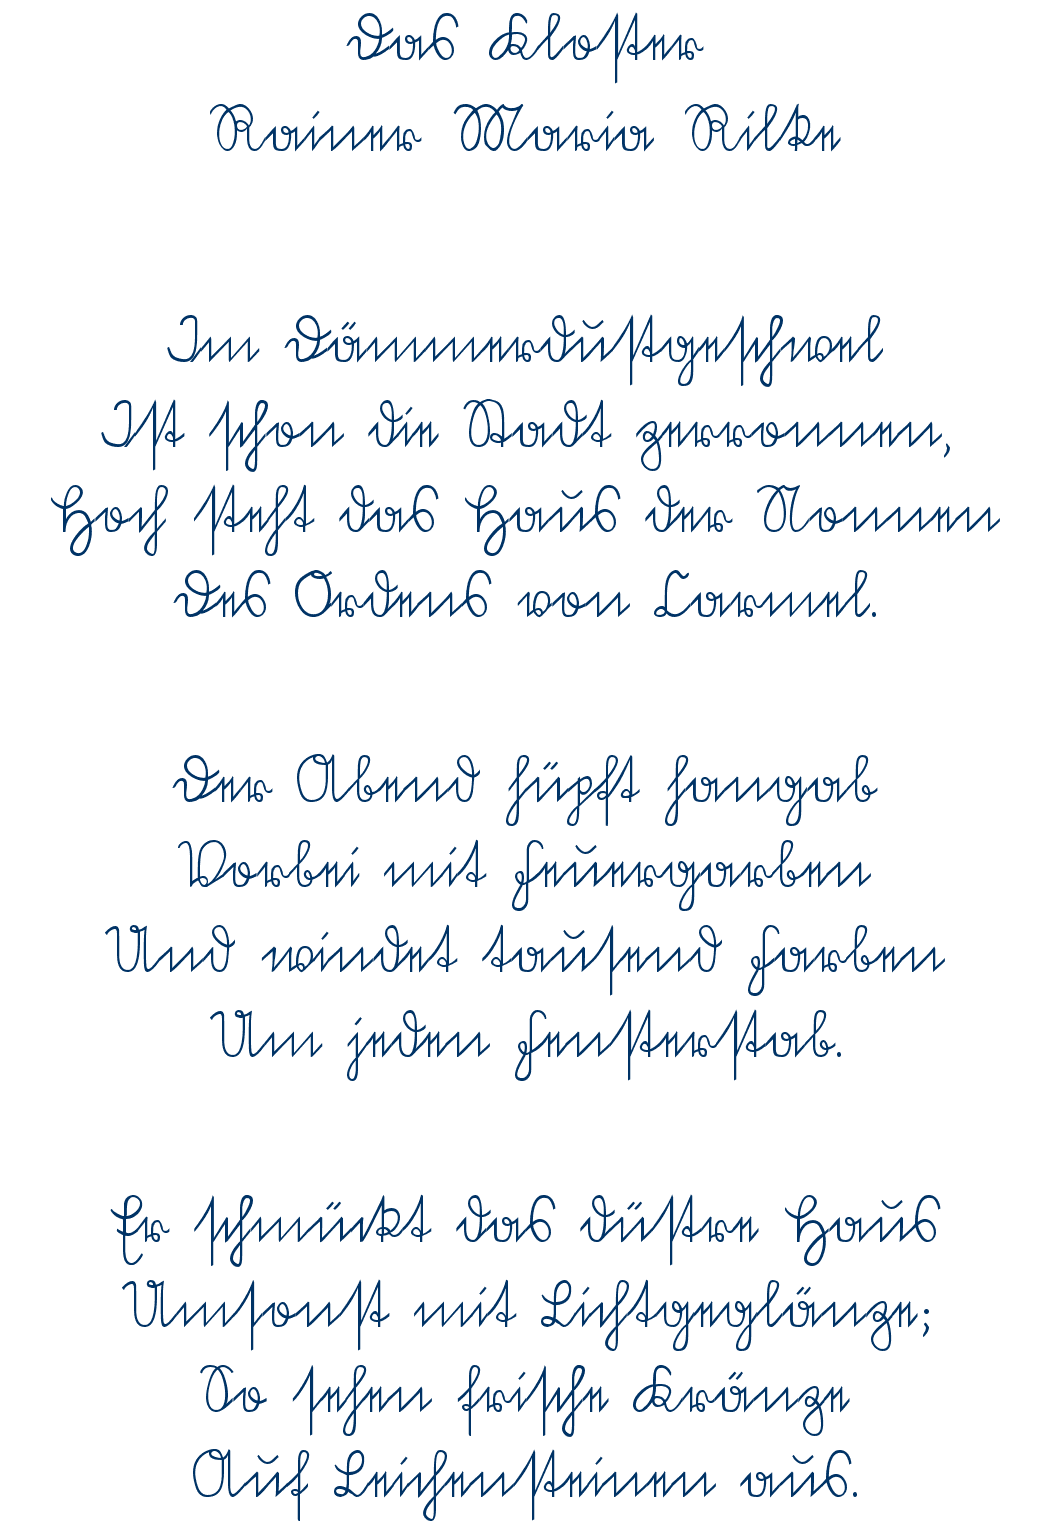 Das Kloster
Rainer Maria Rilke
Im Dämmerdustgeschwel
Ist schon die Stadt zerronnen,
Hoch steht das Haus der Nonnen
Des Ordens von Carmel.
Der Abend hüpft hangab
Vorbei mit Feuergarben
Und windet tausend Farben
Um jeden Fensterstab.
Er schmückt das düstre Haus
Umsonst mit Lichtgeglänze;
So sehen frische Kränze
Auf Leichensteinen aus.